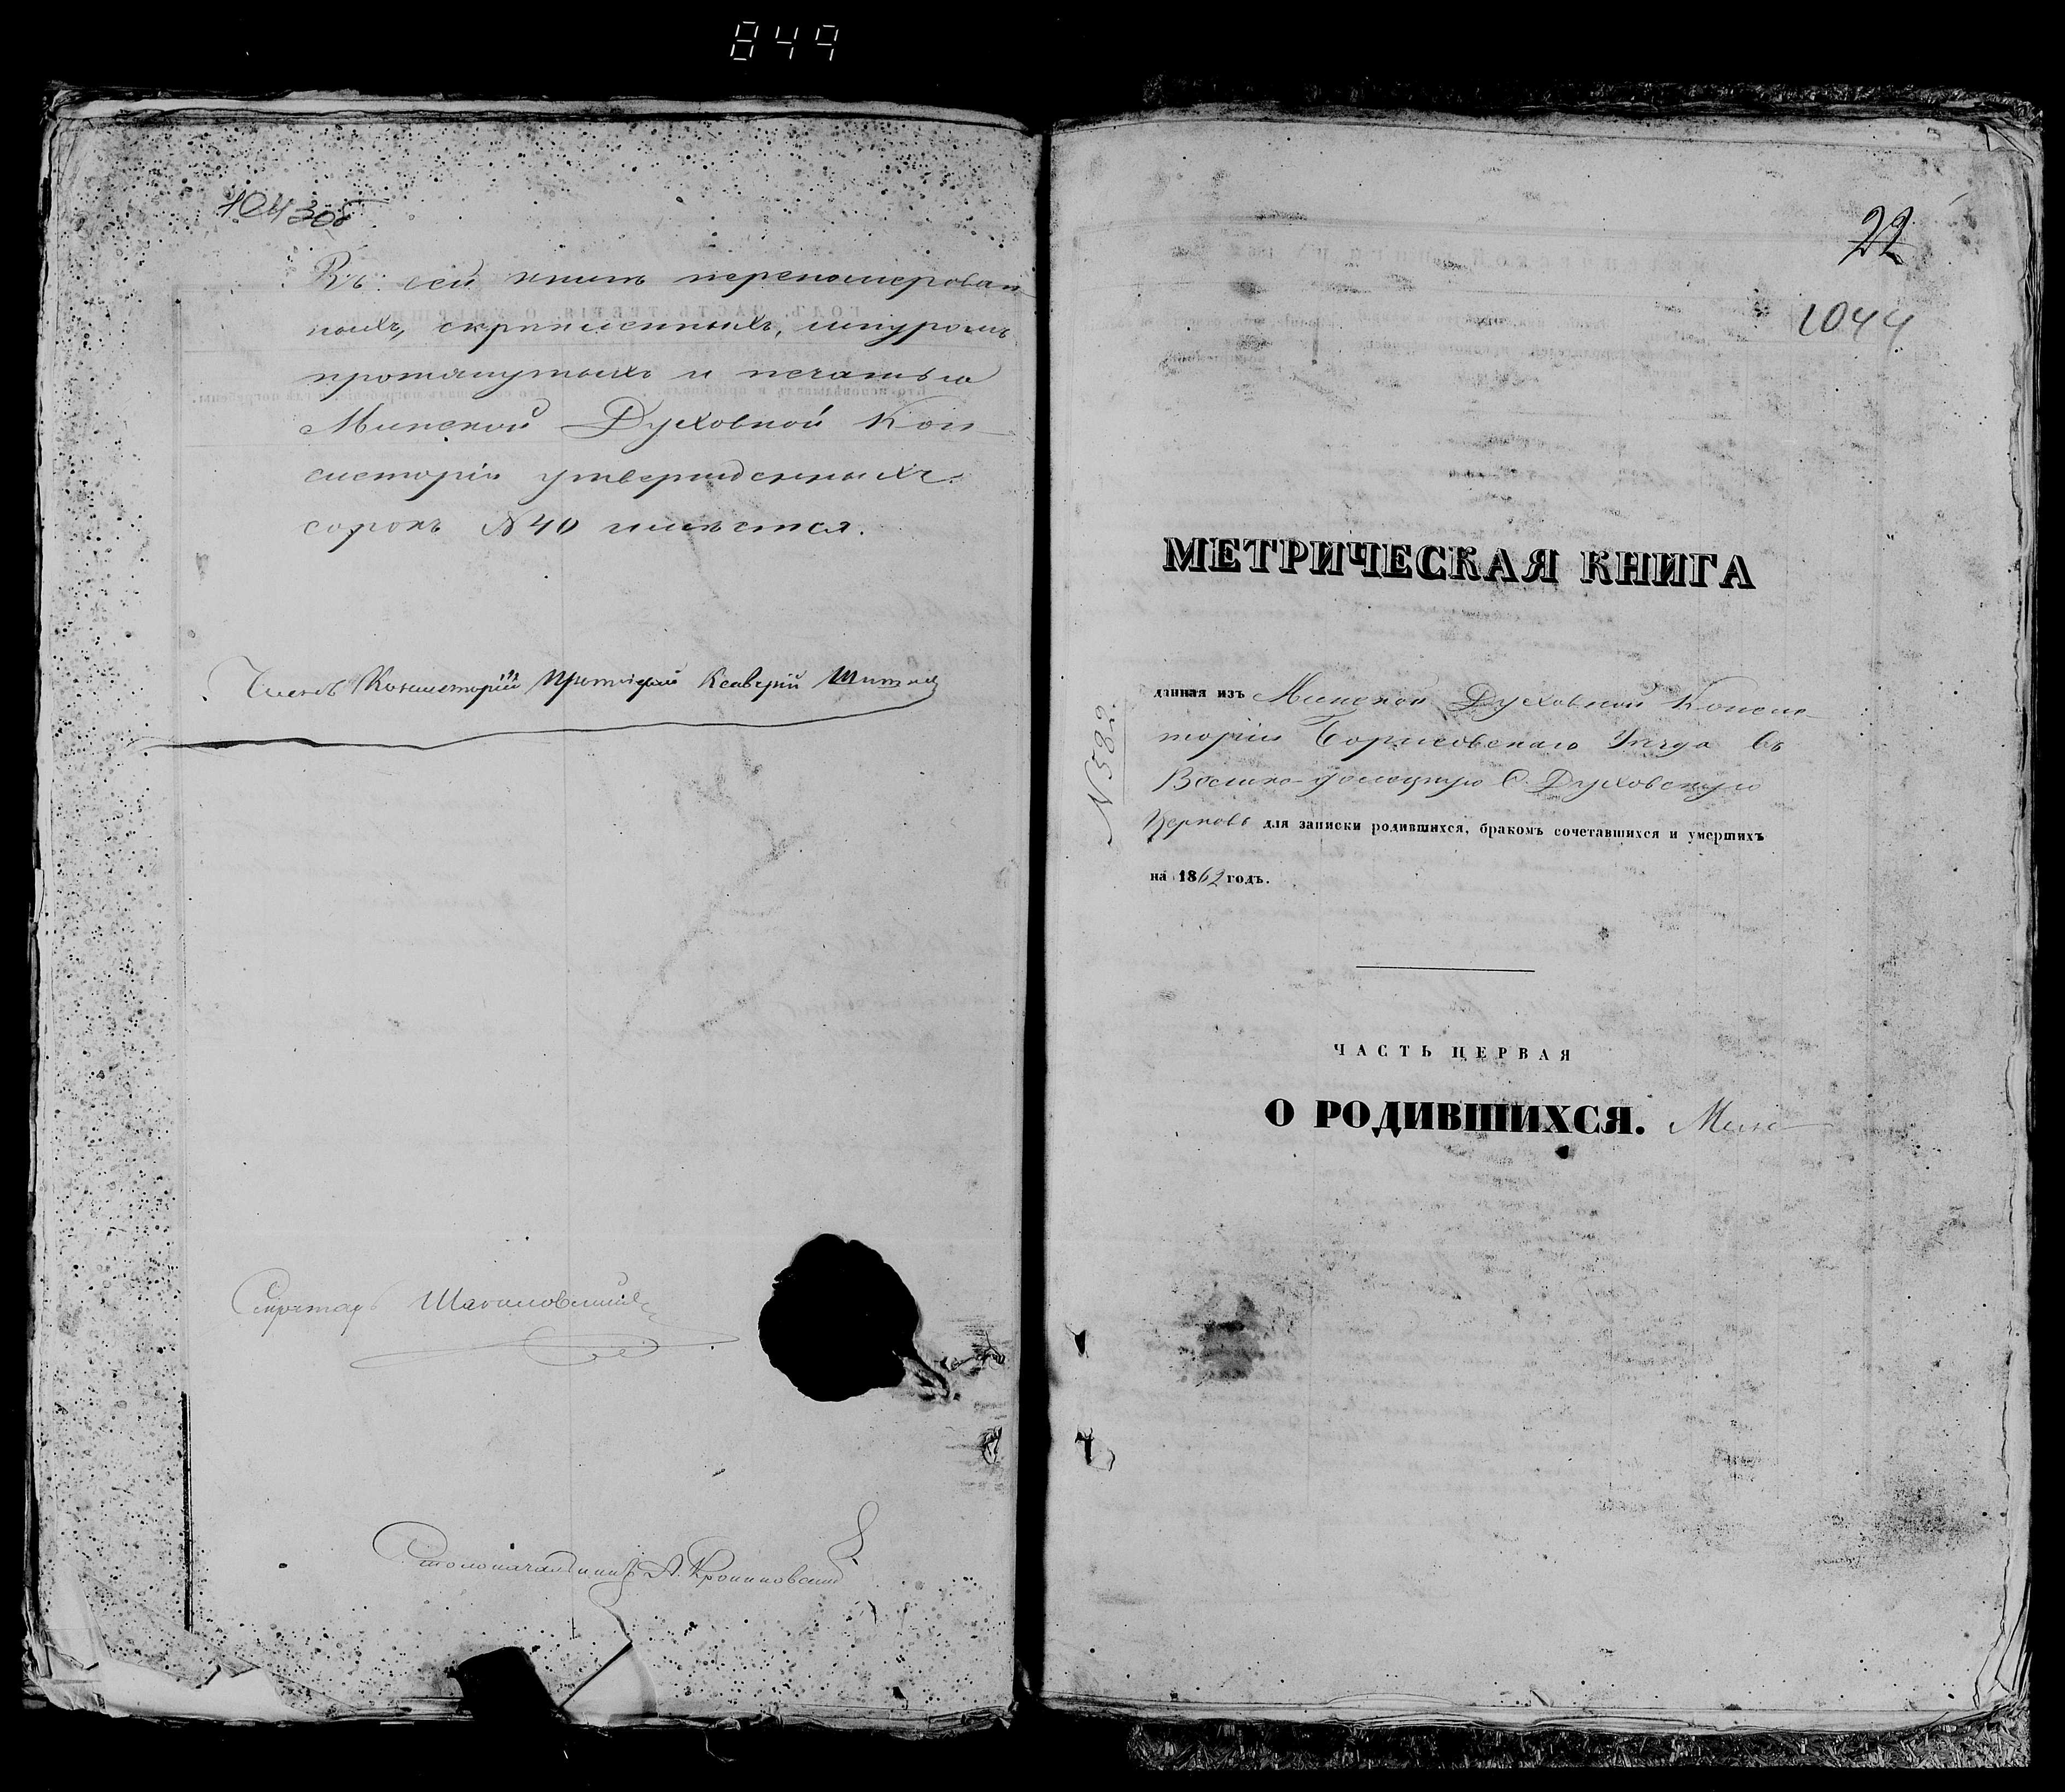 849
1043об
Въ сей книгѣ перенумерован
ныхъ, скрѣпленныхъ, шнуромъ
протянутыхъ и печатью
Минской Духовной Кон
систоріи утвержденныхъ
сорокъ N 40 имѣется.
Членъ Консисторіи Протоіерей Ксаверій
Секретарь
Столоначальникъ А.
22
1044
МЕТРИЧЕСКАЯ КНИГА
N 582.
данная изъ Минской Духовной Консис-
торіи Борисовскаго Уѣзда въ
Велико-долецкую С. Духовскую
Церковь для записки родившихся, бракомъ сочетавшихся и умершихъ
на 1862 годъ.
ЧАСТЬ ПЕРВАЯ
О РОДИВШИХСЯ.